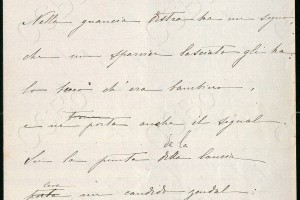 Nella guancia destra ha un segno,
che un sparvier lasciato gli ha
lo che era bambino,
e ne porta anche il segnal.
de la
Su la punta della lancia
cara
porta un candido zendal: